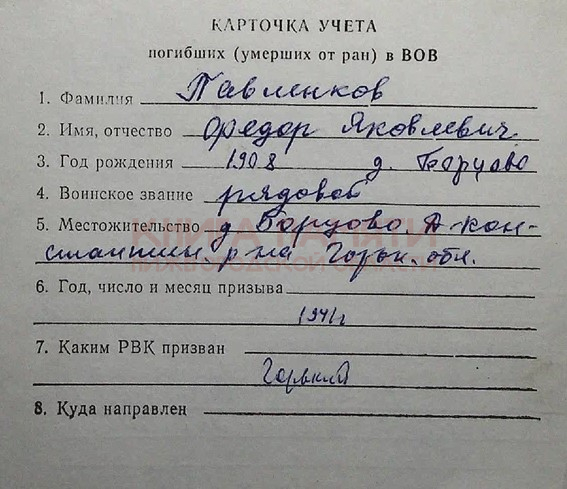 КАРТОЧКА УЧЕТА
погибших (умерших от ран) в ВОВ
1. Фамилия Павленков
2. Имя, отчество Федор Яковлевич
3. Год рождения 1908 д. Борцово
4. Воинское звание рядовой
5. Местожительство д. Борцово Д-кон-
стантин. р-на Горьк. обл.
КНИГА ПАМЯТИ
НИЖЕГОРОДСКОЙ ОБЛАСТИ
6. Год, число и месяц призыва
1941 г
7. Каким РВК призван
Горький
8. Куда направлен